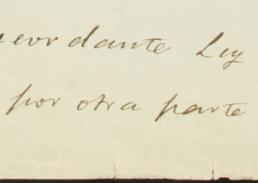 dante Luy
por otra parte